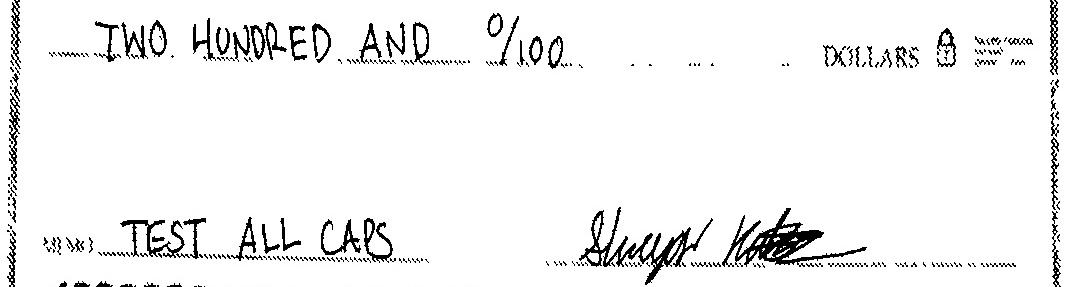 TWO HUNDRED AND 0/100 DOLLARS
MEMO TEST ALL CAPS